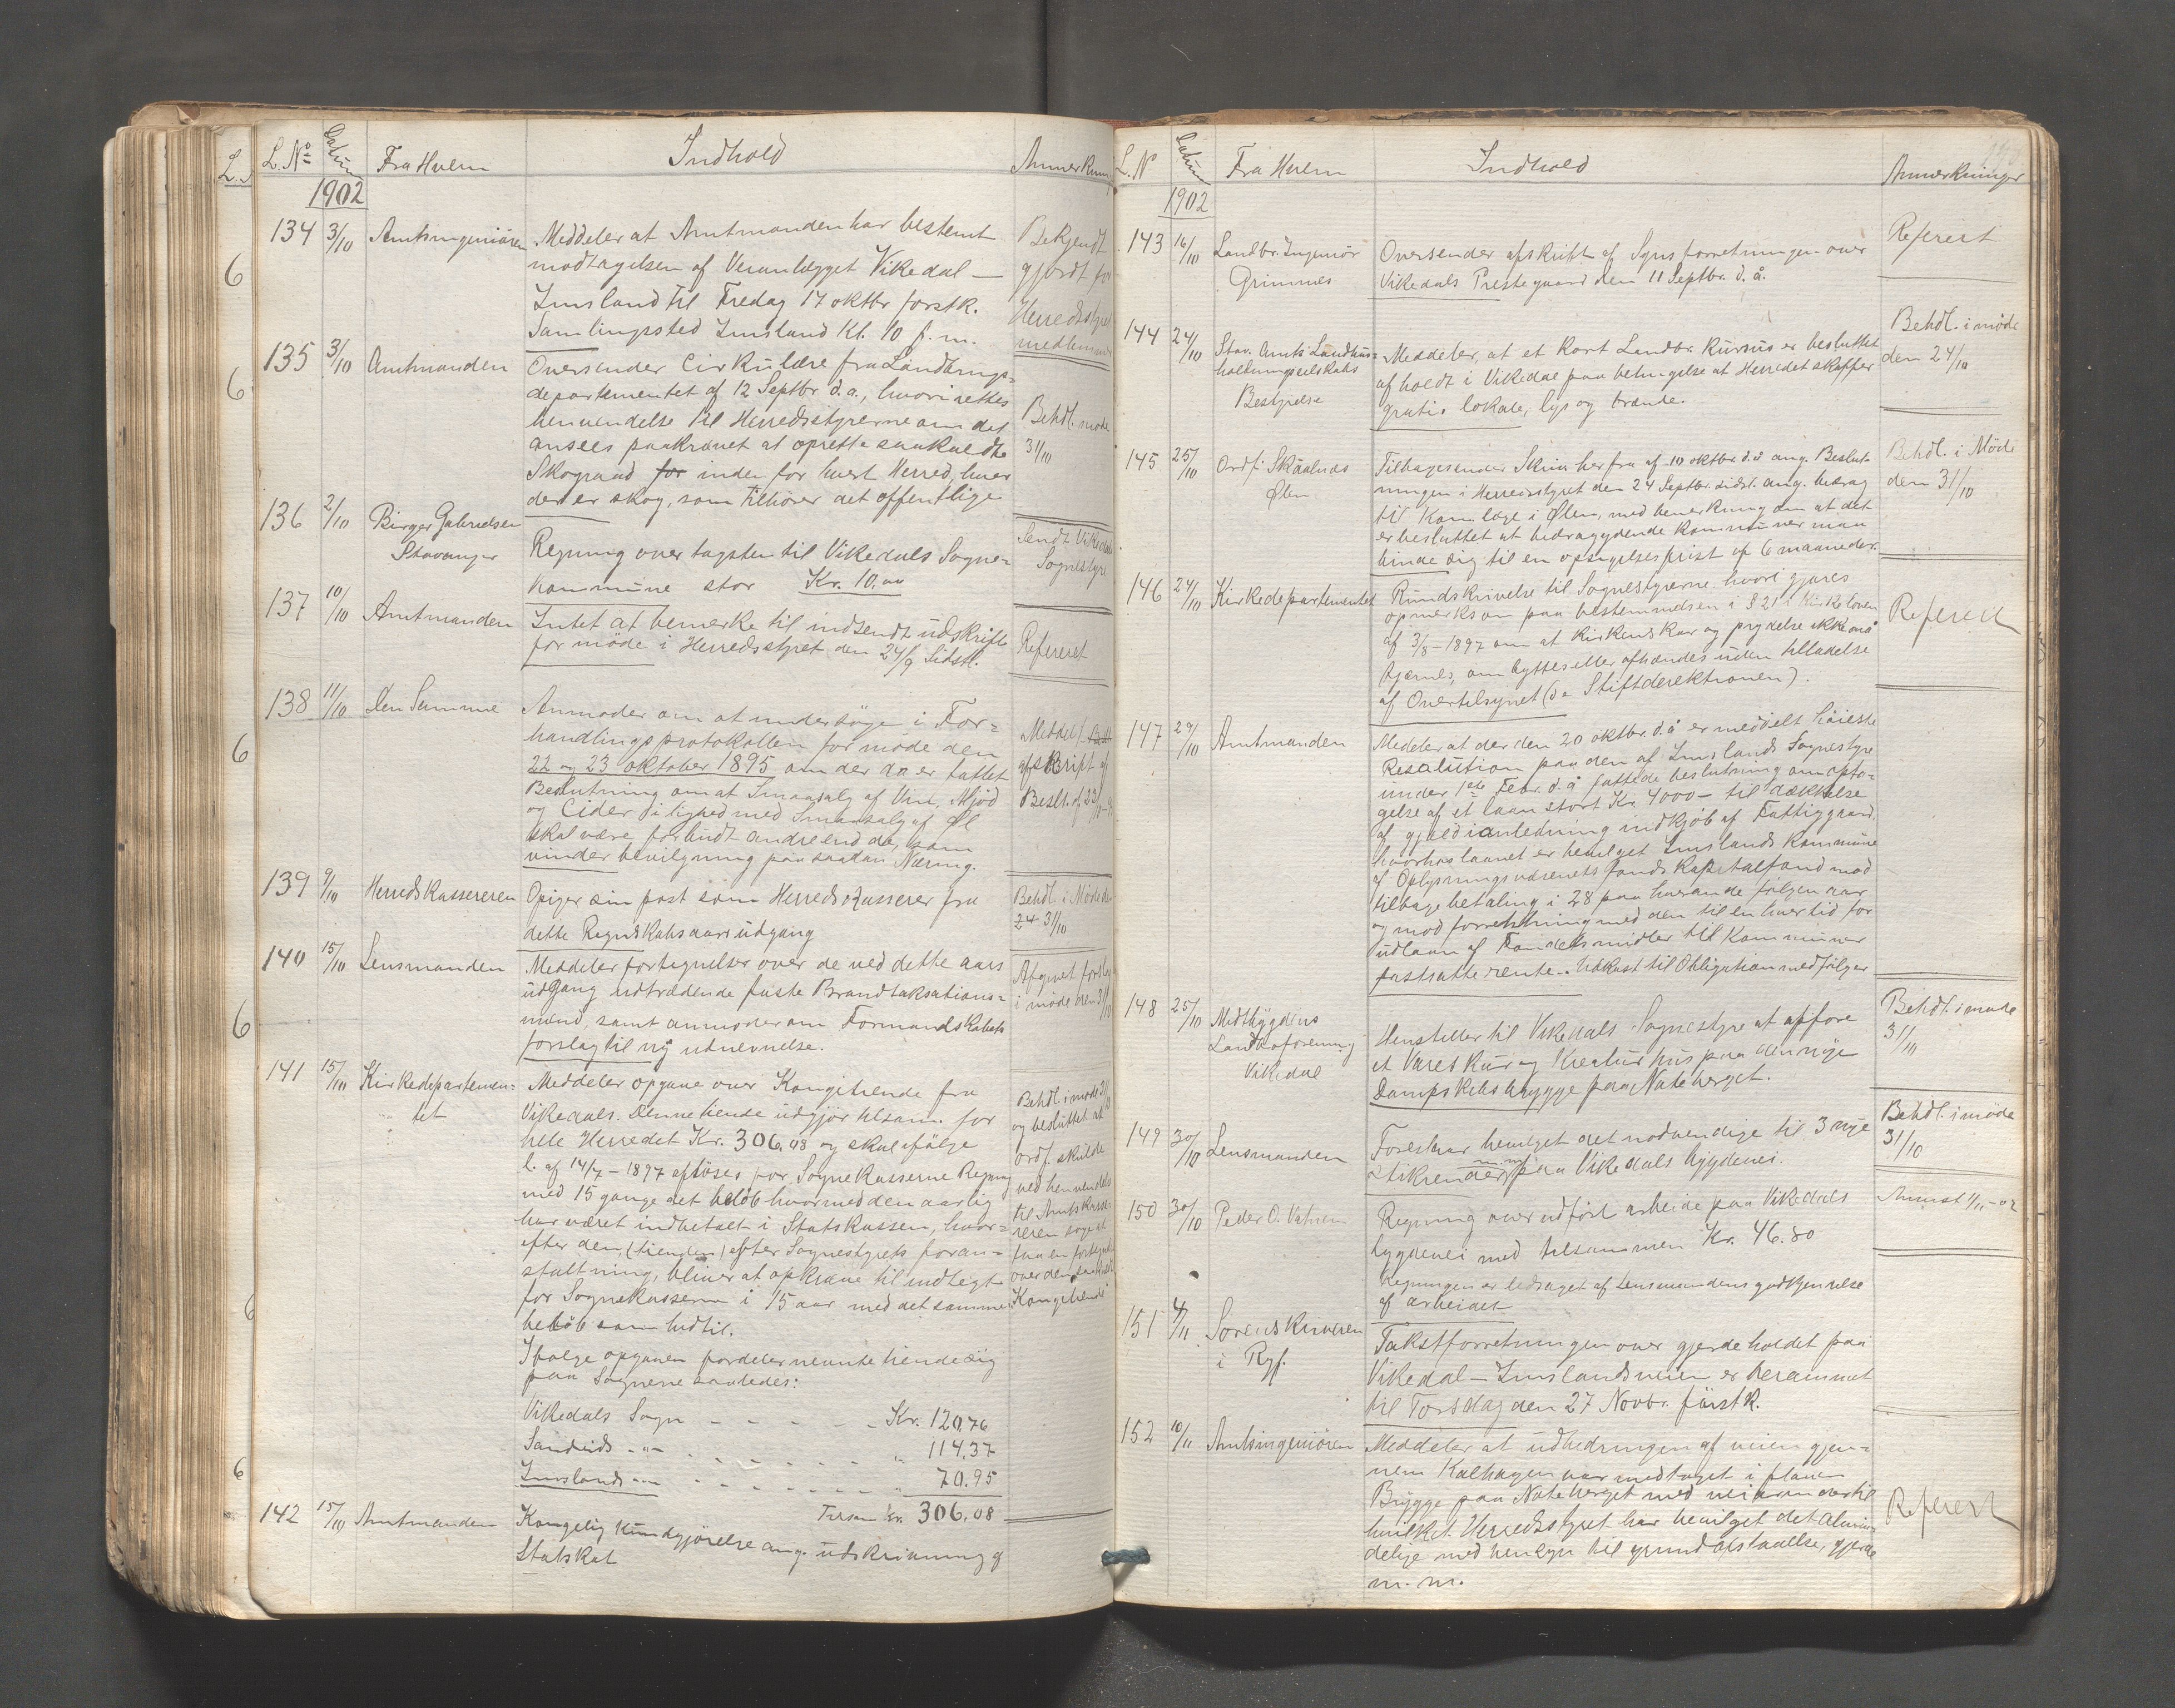 L. Nº Datum Fra Hvem Indhold Anmerkning
1902
134 3/10 Amtsingeniören Meddeler at Amtmanden har bestemt
modtagelsen af Veranlægget Vikedal —
Imsland til Fredag 17 oktbr förstk.
Samlingssted Imsland Kl. 10 f. m.
Bekjendt
gjordt for
Herredsstyrets
medlemmer
135 3/10 Amtmanden Oversender Cirkulære fra Landbrugs-
departementet af 12 Septbr d.a., hvori rettes
henvendelse til Herredsstyrerne om det
ansees paakrævet at oprette saakaldte
Skograad for inden for hvert Herred, hvor
der er skog, som tilhører det offentlige
Behdl. møde
31/10
136 2/10 Birger Gabrielsen
Stavanger
Regning over tagsten til Vikedals Sogne-
kommune stor Kr. 10.00
Sendt Vikedals
Sognestyre
137 10/10 Amtmanden Intet at bemerke til indsendt udskrift
for möde i Herredsstyret den 24/9 sidstl.
Refereret
138 11/10 Den Samme Anmoder om at undersöge i For-
handlingsprotokollen for møde den
22 og 23 oktober 1895 om der da er fattet
Beslutning om at Smaasalg af Vin, Mjød
og Cider i lighed med Smaasalg af Øl
skal være forbudt andre end de, som
vinder bevilgning paa saadan Næring.
Meddelt
afskrift af
Beslt. af 23/10-95
139 9/10 Herredskassereren Opsiger sin post som Herredskasserer fra
dette Regnskabsaars udgang
Behdl. i Møde den
24 31/10
140 15/10 Lensmanden Meddeler fortegnelser over de ved dette aars
udgang udtrædende faste Brandtaksations-
mænd, samt anmoder om Formandskabets
forslag til ny udnevnelse.
Afgivet forslag
i møde den 31/10
141 15/10 Kirkedepartemen-
tet
Meddeler opgave over Kongetiende fra
Vikedals. Denne tiende udgjør tilsam. for
hele Herredet Kr. 306,08 og skal ifölge
l. af 14/7 – 1897 aflöses for Sognekassernes Regning
med 15 gange det beløb hvormed den aarlig
har været indbetalt i Statskassen, hvor-
efter den (tienden) efter Sognestyrets foran-
staltning, bliver at opkræve til indtegt
for Sognekasserne i 15 aar med det samme
beløb som hidtil.
Ifølge opgaven fordeler nevnte tiende sig
paa Sognene saaledes:
Vikedals Sogn - - - - - - Kr. 120,76
Sandeids -"- - - - - - - " 114,37
Imslands -"- - - - - - - " 70.95
Tilsam kr. 306,08
Behdl. i møde 31/10
og besluttet at
ordf. skulde
ved henvendelse
til Amtskasse-
reren søge at
faa en fortegnelse
over den saakaldte
Kongetiende
142 15/10 Amtmanden Kongelig Kundgjørelse ang. udskrivning af
Statskat
L. N Datum Fra Hvem Indhold Anmerkninger
1902
143 16/10 Landbr. Ingeniör
Grimnes
Oversender afskrift af Synsforretningen over
Vikedals Prestegaard den 11 Septbr. d. å.
Referert
144 24/10 Stav. Amts Landhus-
holdningsselskabs
Bestyrelse
Meddeler, at et kort Landbr. Kursus er besluttet
afholdt i Vikedal paa betingelse at Herredet skaffer
gratis lokale, lys og brænde.
Behdl. i møde
den 24/10
145 25/10 Ordf. Skäalnæs
Ølen
Tilbagesender Skriv herfra af 10 oktbr d.å ang. Beslut-
ningen i Herredsstyret den 24 Septbr. sidstl. ang. bidrag
til Kom.læge i Ølen, med bemerkning om at det
er besluttet at bidragydende kommuner maa
binde sig til en opsigelsesfrist af 6 maaneder.
Behdl. i Møde
den 31/10
146 24/10 Kirkedepartementet Rundskrivelse til Sognestyrerne hvori gjøres
opmerksom paa bestemmelsen i § 21 i Kirkeloven
af 3/8 – 1897 om at Kirkens kar og prydelse ikke må
fjernes, ombyttes eller afhændes uden tilladelse
af Overtilsynet (d.e Stiftsdirektionen).
Referert
147 29/10 Amtmanden Meddeler at der den 20 oktbr. d.å er meddelt høieste
Resolution paa den af Imslands Sognestyre
under 1ste Febr. d.å fattede beslutning om opta-
gelse af et laan stort Kr. 4000 – til dækkelse
af gjæld i anledning indkjøb af Fattiggaard.
hvorhos laanet er bevilget Imslands Kommune
af Oplysningsvæsenets fonds Kapitalfond mod
tilbagebetaling i 28 paa hverande følgen aar
og mod forrentning med den til en hver tid for
udlaan af Fondets midler til Kommuner
fastsatte rente. Udkast til Obligation medfølger
148 25/10 Midtbygdens
Landboforening
Vikedal
Henstiller til Vikedals Sognestyre at opføre
et Vareskur og Kreaturhus paa den nye
Dampskibsbrygge paa Nateberget.
Behdl. i møde
31/10
149 30/10 Lensmanden Foreslaar bevilget det nødvendige til 3 nye
stikrender m.m. paa Vikedals bygdevei.
Behdl. i møde
31/10
150 30/10 Peder O. Vatnem Regning over udført arbeide paa Vikedals
bygdevei med tilsammen Kr. 46.80
Regningen er ledsaget af Lensmandens godkjendelse
af arbeidet
Anvist 1/11-02
151 4/11 Sorenskriveren
i Ryf.
Takstforretningen over gjerdeholdet paa
Vikedal – Imslandsveien er berammet
til Torsdag den 27 Novbr. förstk.
152 10/11 Amtsingeniören Meddeler at udbedringen af veien gjen-
nem Kalhagen var medtaget i planen
Brygge paa Nateberget med vei dertil
hvilket Herredsstyret har bevilget det almin-
delige med hensyn til grundafstaaelse, gjerde
m. m.
Referert